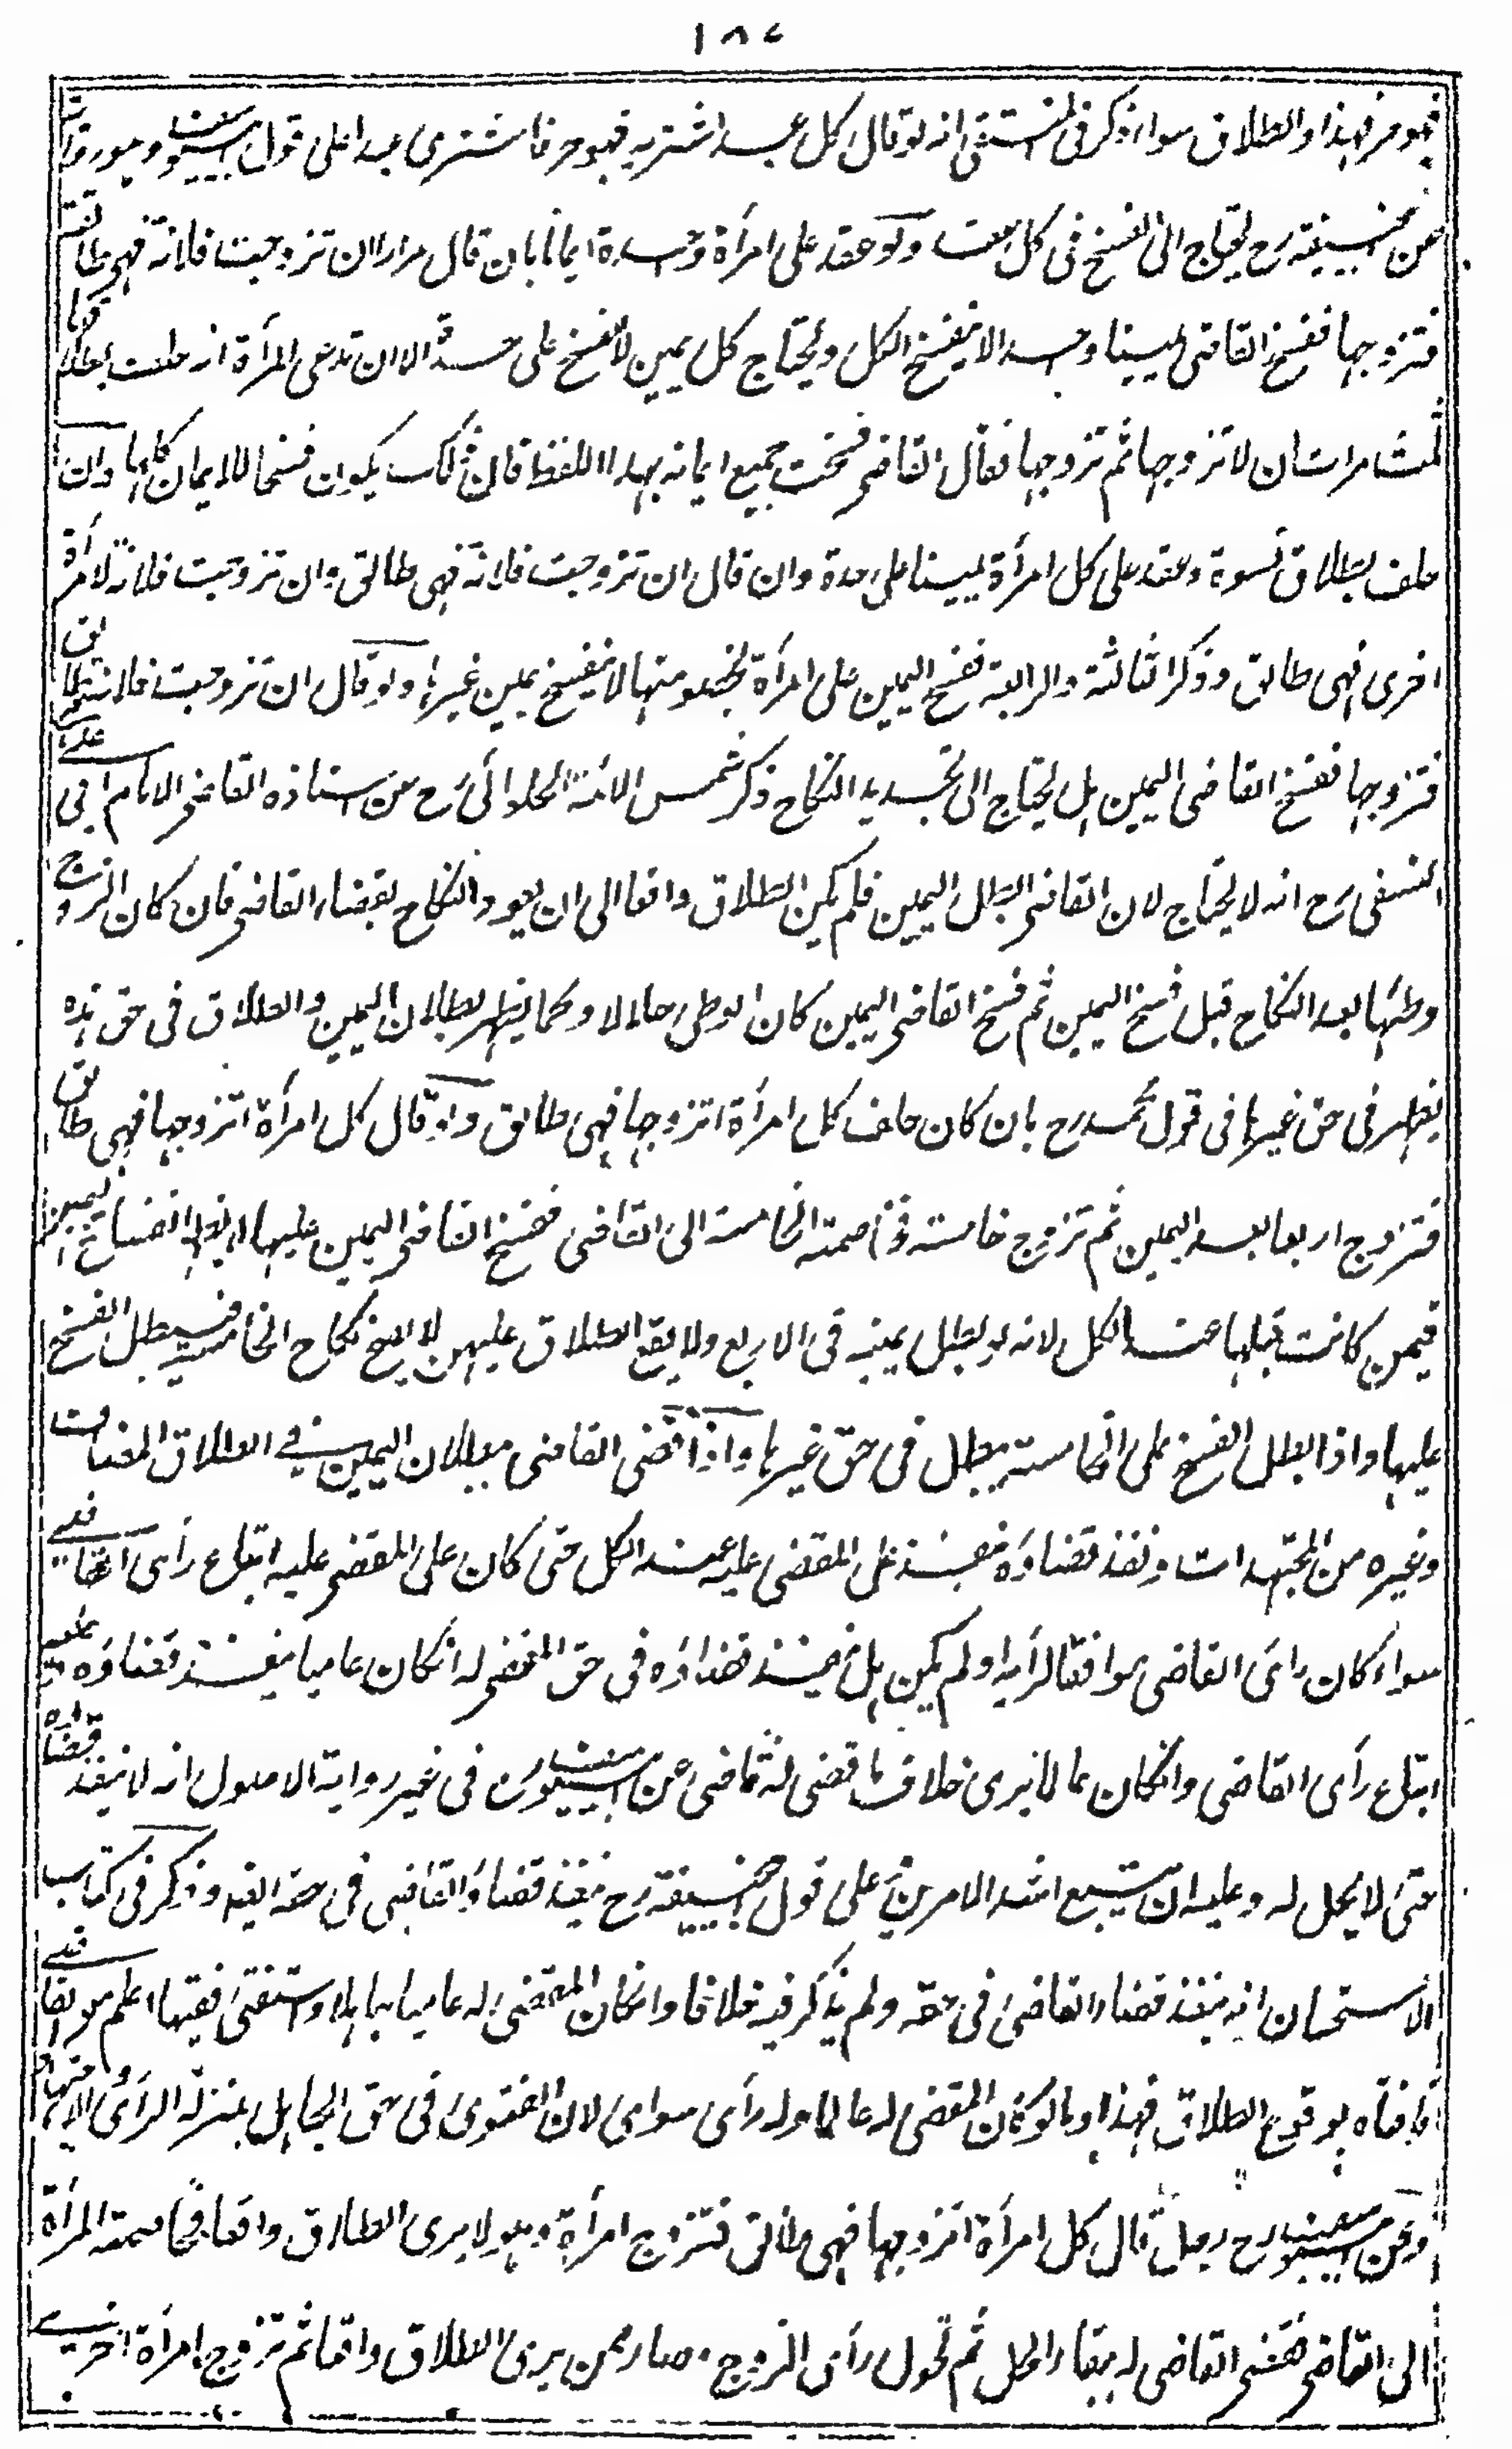 ١٨٧
فهو حر فهذا والطلاق سواء ذكر فى المنتقى انه لو قال كل عبد اشتريه فهو حر فاشترى عبدا على قول ابى يوسف وهو رواية
عن ابى حنيفة رح يحتاج الى الفسخ فى كل بعت ولو عقد على امرأة واحدة ايمانا بان قال مرارا ان تزوجت فلانة فهى طالق
فتزوجها ففسخ القاضى يمينا واحدا لا ينفسخ الكل ويحتاج كل يمين لا لفسخ على حدة الا ان تدعى المرأة انه حلف بطلاقها
ثلث مرات ان لا تزوجها ثم تزوجها فقال القاضى فسخت جميع ايمانه بهذا اللفظ قال ذلك يكون فسخا للايمان كلها وان
حلف بطلاق نسوة وعقد على كل امرأة يمينا على حدة وان قال ان تزوجت فلانة فهى طالق وان تزوجت فلانة لامرأة
اخرى فهى طالق وذكر الثالثة والرابعة ففسخ اليمين على امرأة بخصومتها لا ينفسخ يمين غيرها ولو قال ان تزوجت فلانة فهى طالق
فتزوجها ففسخ القاضى اليمين هل يحتاج الى تجديد النكاح ذكر شمس الائمة الحلوائى رح عن استاذه القاضى الامام ابى على
النسفى رح انه لا يحتاج لان القاضى ابطل اليمين فلم يكن الطلاق واقعا الى ان يعود النكاح بقضاء القاضى فان كان الزوج
وطئها بعد النكاح قبل فسخ اليمين ثم فسخ القاضى اليمين كان الوطى حلالا وكما يظهر بطلان اليمين والطلاق فى حق هذه
يظهر فى حق غيرها فى قول محمد رح بان كان حلف كل امرأة اتزوجها فهى طالق ولو قال كل امرأة اتزوجها فهى طالق
فتزوج اربعا بعد اليمين ثم تزوج خامسة فخاصمته الخامسة الى القاضى ففسخ القاضى اليمين عليها لا يظهر انفساخ اليمين
فيمن كانت قبلها عند الكل لانه لو بطل يمينه فى الاربع ولا يقع الطلاق عليهن لا يصح نكاح الخامسة فيبطل الفسخ
عليها واذا بطل الفسخ على الخامسة يبطل فى حق غيرها واذا قضى القاضى ببطلان اليمين فى الطلاق المضاف
وغيره من المجتهدات ونفذ قضاؤه ينفذ على المقضى عليه عند الكل حتى كان على المقضى عليه اتباع رأى القاضى
سواء كان رأى القاضى موافقا لرأيه او لم يكن هل ينفذ قضاؤه فى حق المقضى له انكان عاميا ينفذ قضاؤه وعليه
اتباع رأى القاضى وانكان عالما يرى خلاف ما قضى له القاضى عن ابى يوسف رح فى غير رواية الاصول انه لا ينفذ قضاؤه
حتى لا يحل له وعليه ان يتبع اشد الامرين على قول ابى حنيفة رح ينفذ قضاء القاضى فى حقه ايضا وذكر فى كتاب
الاستحسان انه ينفذ قضاء القاضى فى حقه ولم يذكر فيه خلافا وانكان المقضى له عاميا جاهلا واستفتى فقيها اعلم من القاضى
فافتاه بوقوع الطلاق فهذا وما لو كان المقضى له عالما وله رأى سواء لان الفتوى فى حق الجاهل بمنزلة الرأى والاجتهاد
وعن ابى يوسف رح رجل قال كل امرأة اتزوجها فهى طالق فتزوج امرأة وهو لا يرى الطلاق واقعا فخاصمته المرأة
الى القاضى فقضى القاضى له ببقاء الحل ثم تحول رأى الزوج وصار ممن يرى الطلاق واقعا ثم تزوج امرأة اخرى